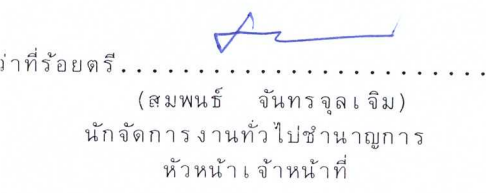 ว่าที่ร้อยตรี............................
(สมพนธ์ จันทรจุลเจิม)
นักจัดการงานทั่วไปชำนาญการ
หัวหน้าเจ้าหน้าที่